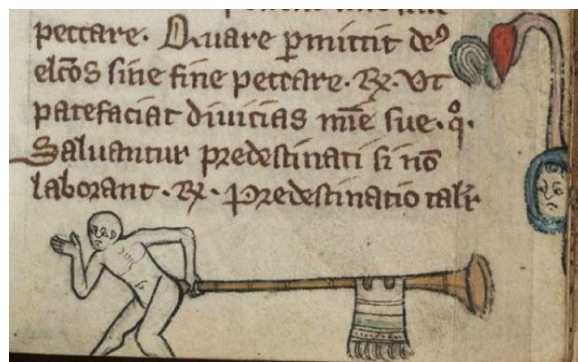 peccare. Quare pmittit deꝰ
elcōs sine fine peccare. ℞. Vt
patefaciat diuicias mīe sue. q̊.
Saluantur predestinati si nō
laborant. ℞. Predestinatio talr̄